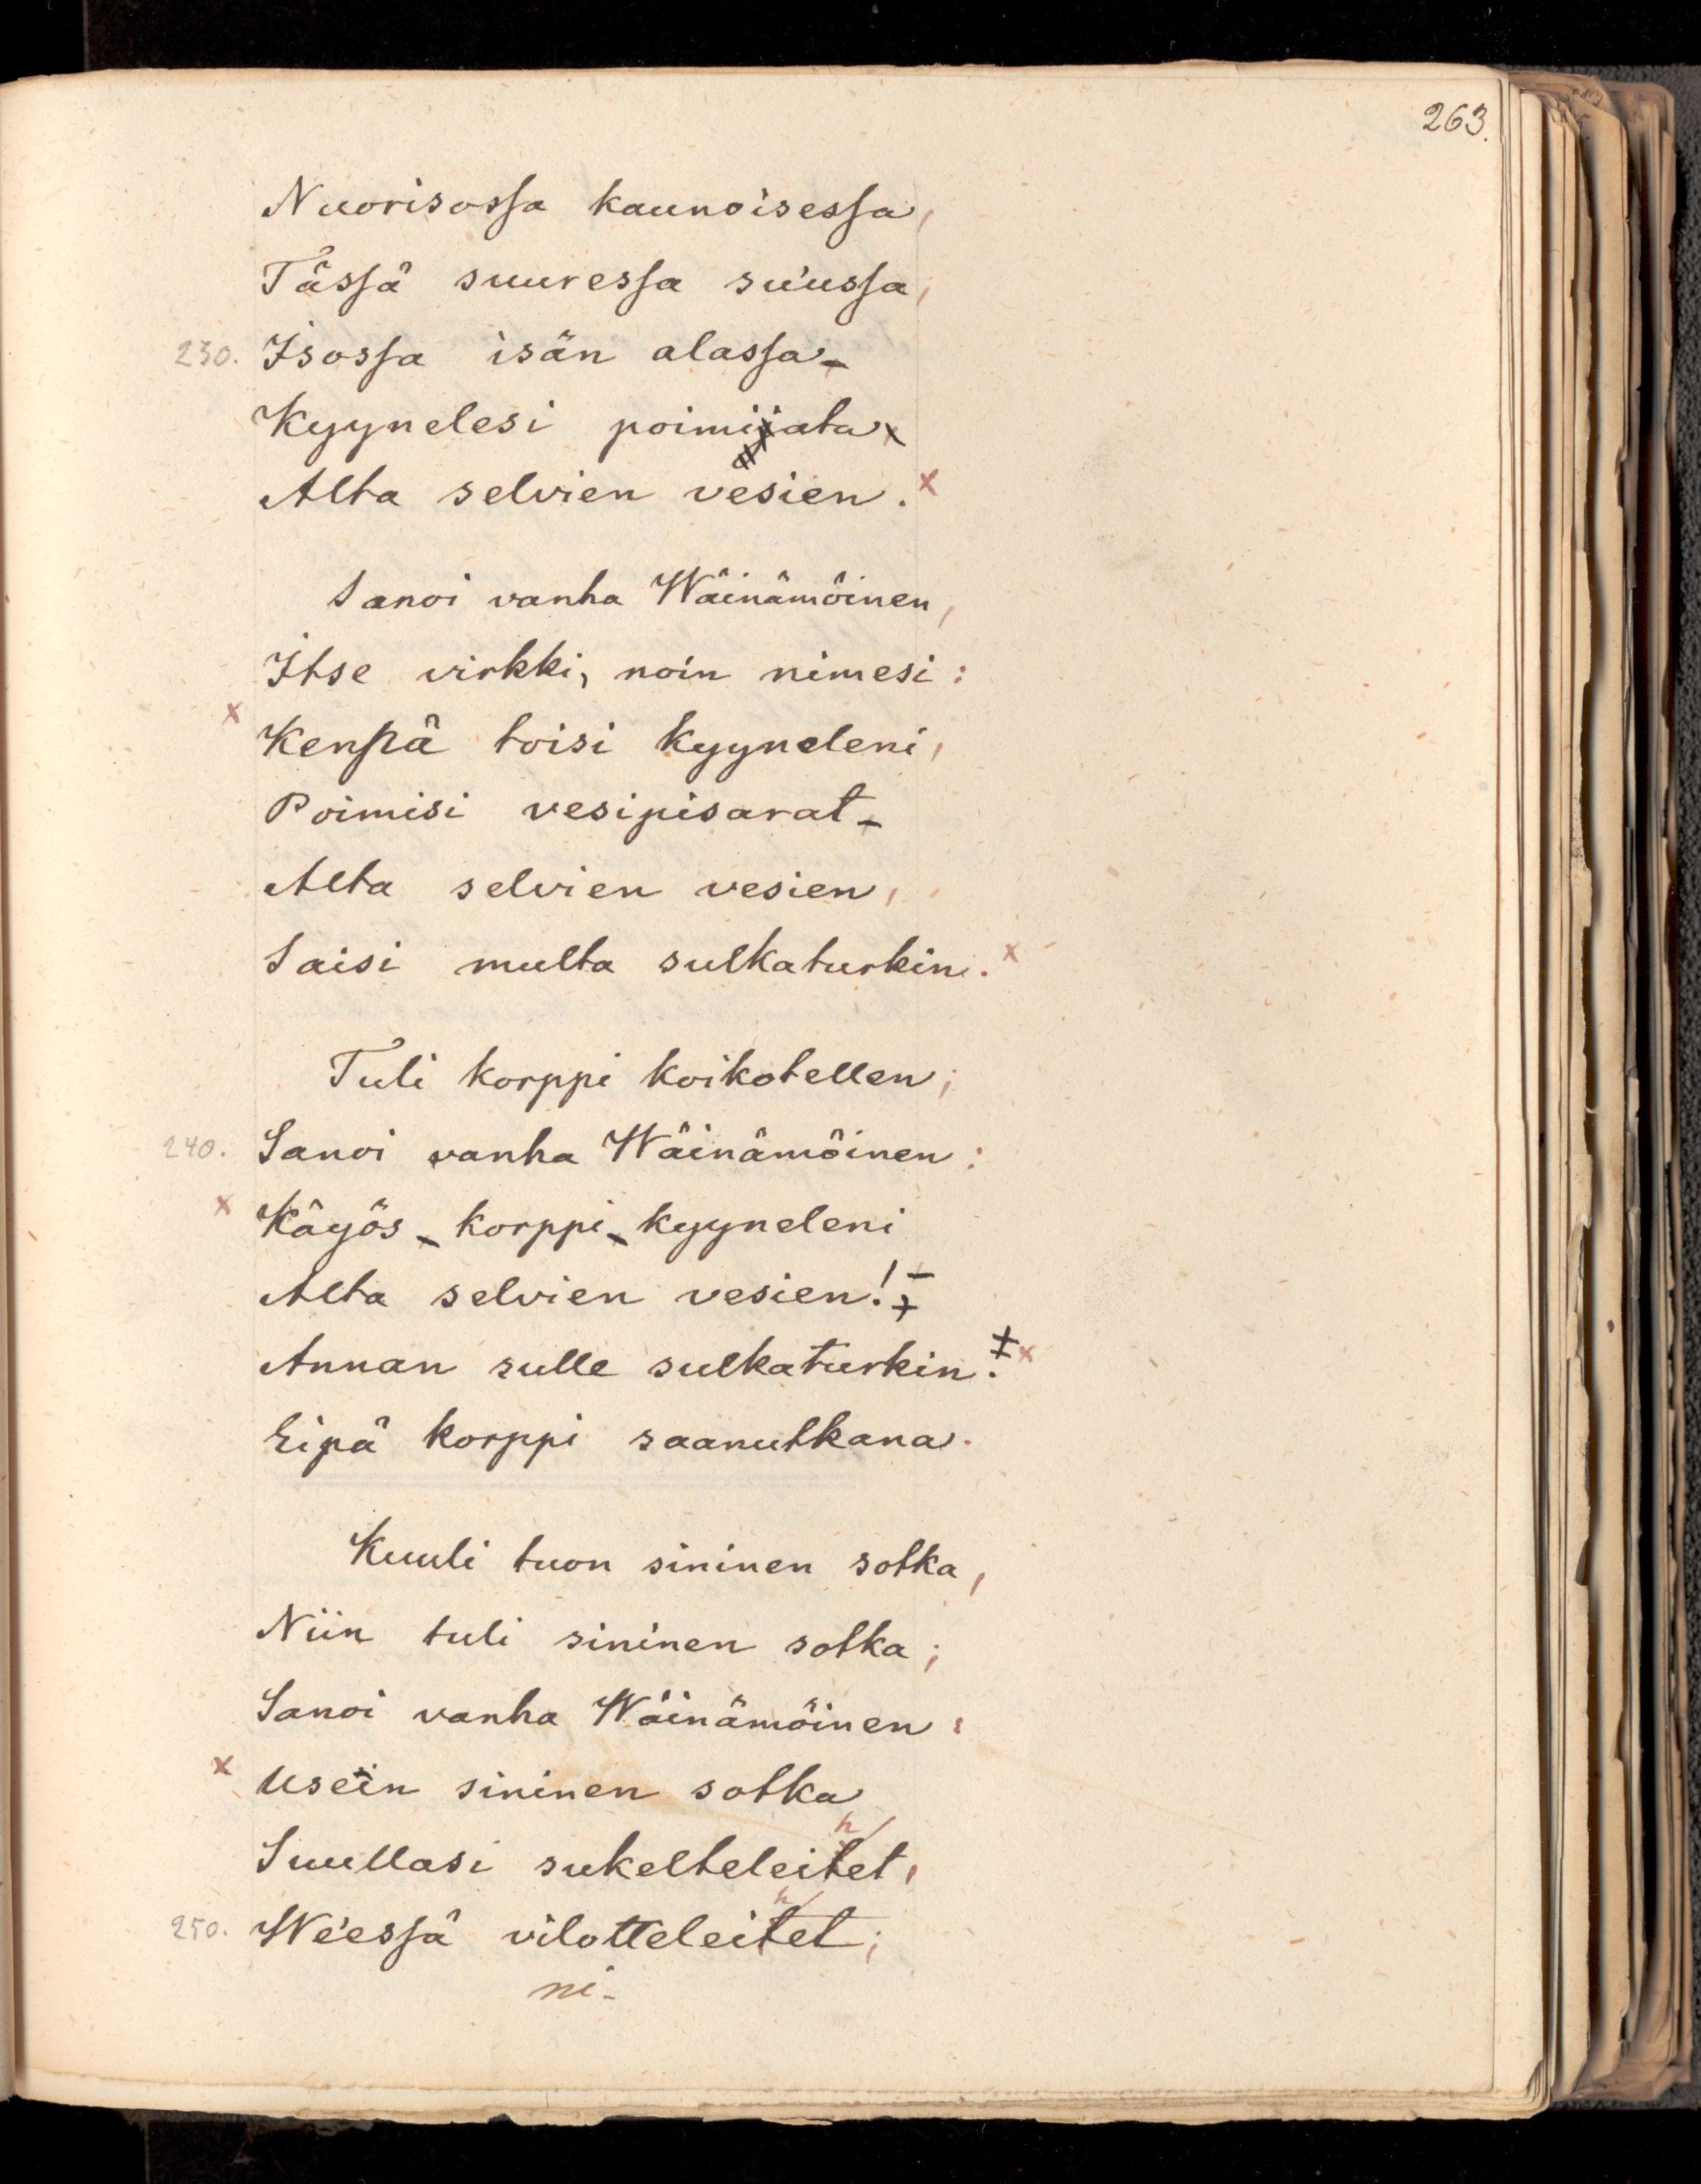 263.
Nuorisossa kaunoisessa,
Tässä suuressa su'ussa,
230. Isossa isän alassa
Kyynelesi poimiata
Alta selvien vesien. x
Sanoi vanha Wäinämöinen,
Itse virkki, noin nimesi:
x Kenpä toisi kyyneleni,
Poimisi vesipisarat
Alta selvien vesien,
Saisi multa sulkaturkin. x
Tuli korppi koikotellen;
240. Sanoi vanha Wäinämöinen:
x Käyös korppi kyyneleni
Alta selvien vesien!
Annan sulle sulkaturkin. x
Eipä korppi saanutkana.
Kuuli tuon sininen sotka,
Niin tuli sininen sotka;
Sanoi vanha Wäinämöinen:
x Usein sininen sotka
h/
Suullasi sukelteleitet,
h/
250. We'essä vilotteleitet;
ni-